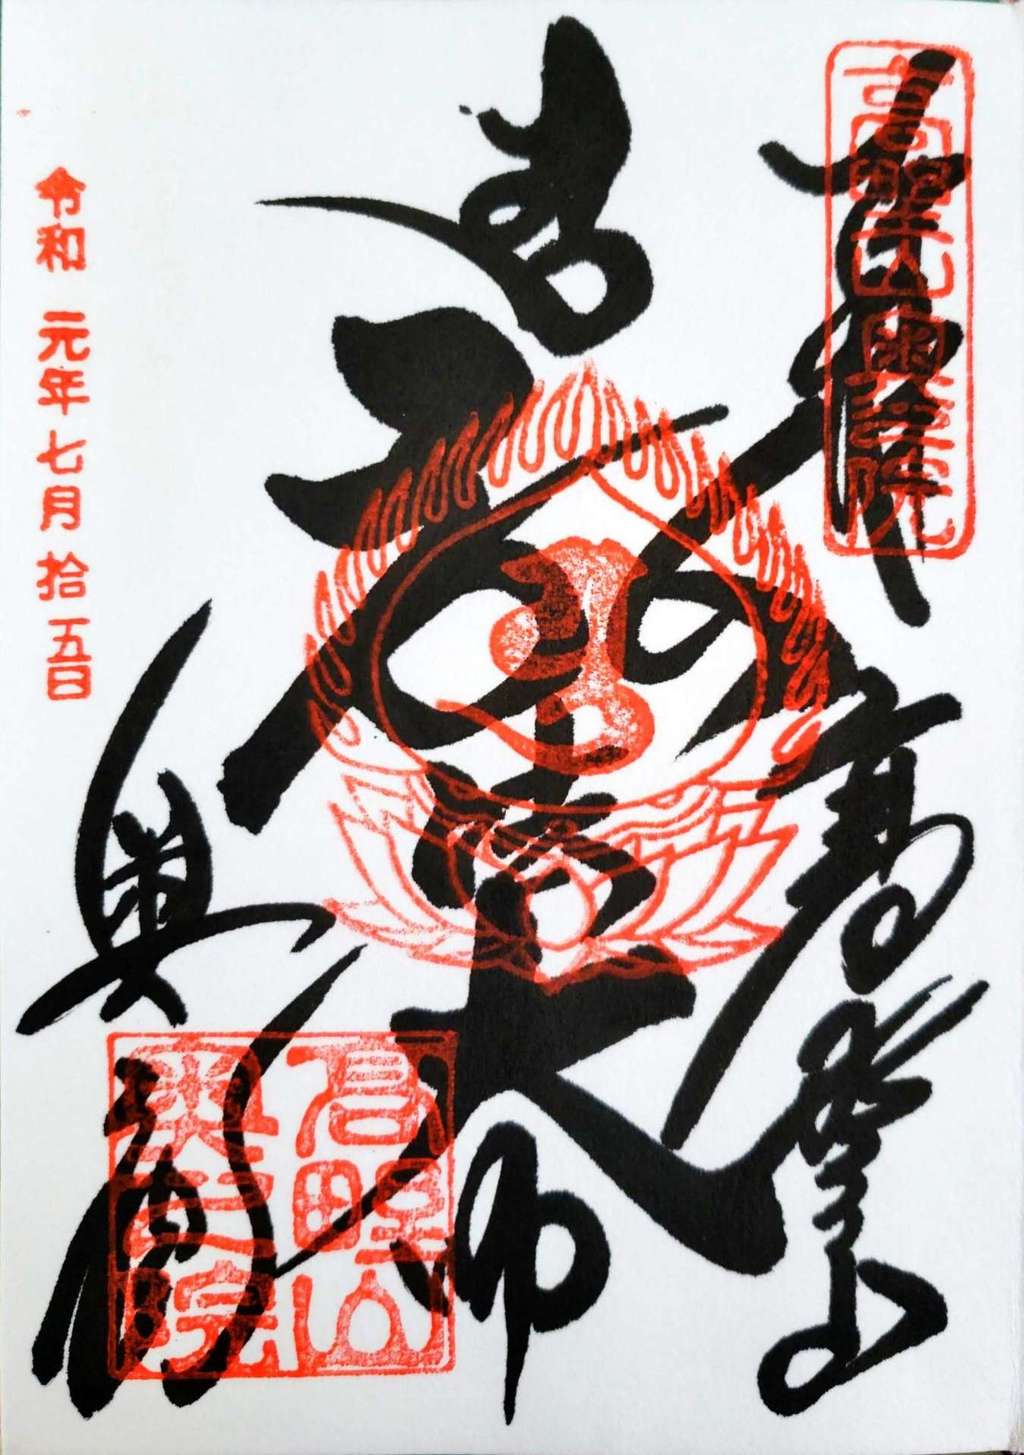 奉拝
高野山奥之院
高野山
弘法大師
奥之院
高野山
奥之院
令和 元年七月拾五日